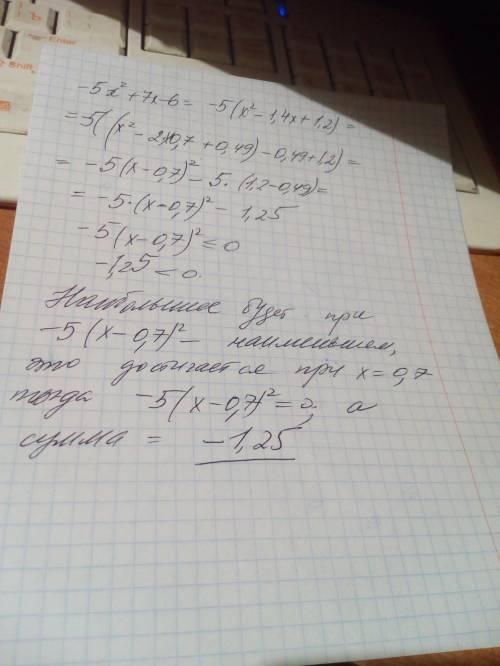 -5x² + 7x - 6 = -5(x² - 1,4x + 1,2) =
= 5((x² - 2x0,7 + 0,49) - 0,49 + 1,2) =
= -5(x - 0,7)² - 5 · (1,2 - 0,49) =
= -5 · (x - 0,7)² - 1,25
-5(x - 0,7)² ≤ 0
-1,25 < 0.
Наибольшее будет при
-5(x - 0,7)² - наименьшем,
это достигается при x = 0,7
тогда -5(x - 0,7)² = 0, а
сумма = -1,25
Enter
Shift